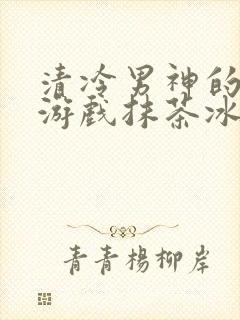 清冷男神的
游戏抹茶冰
青青楊柳岸